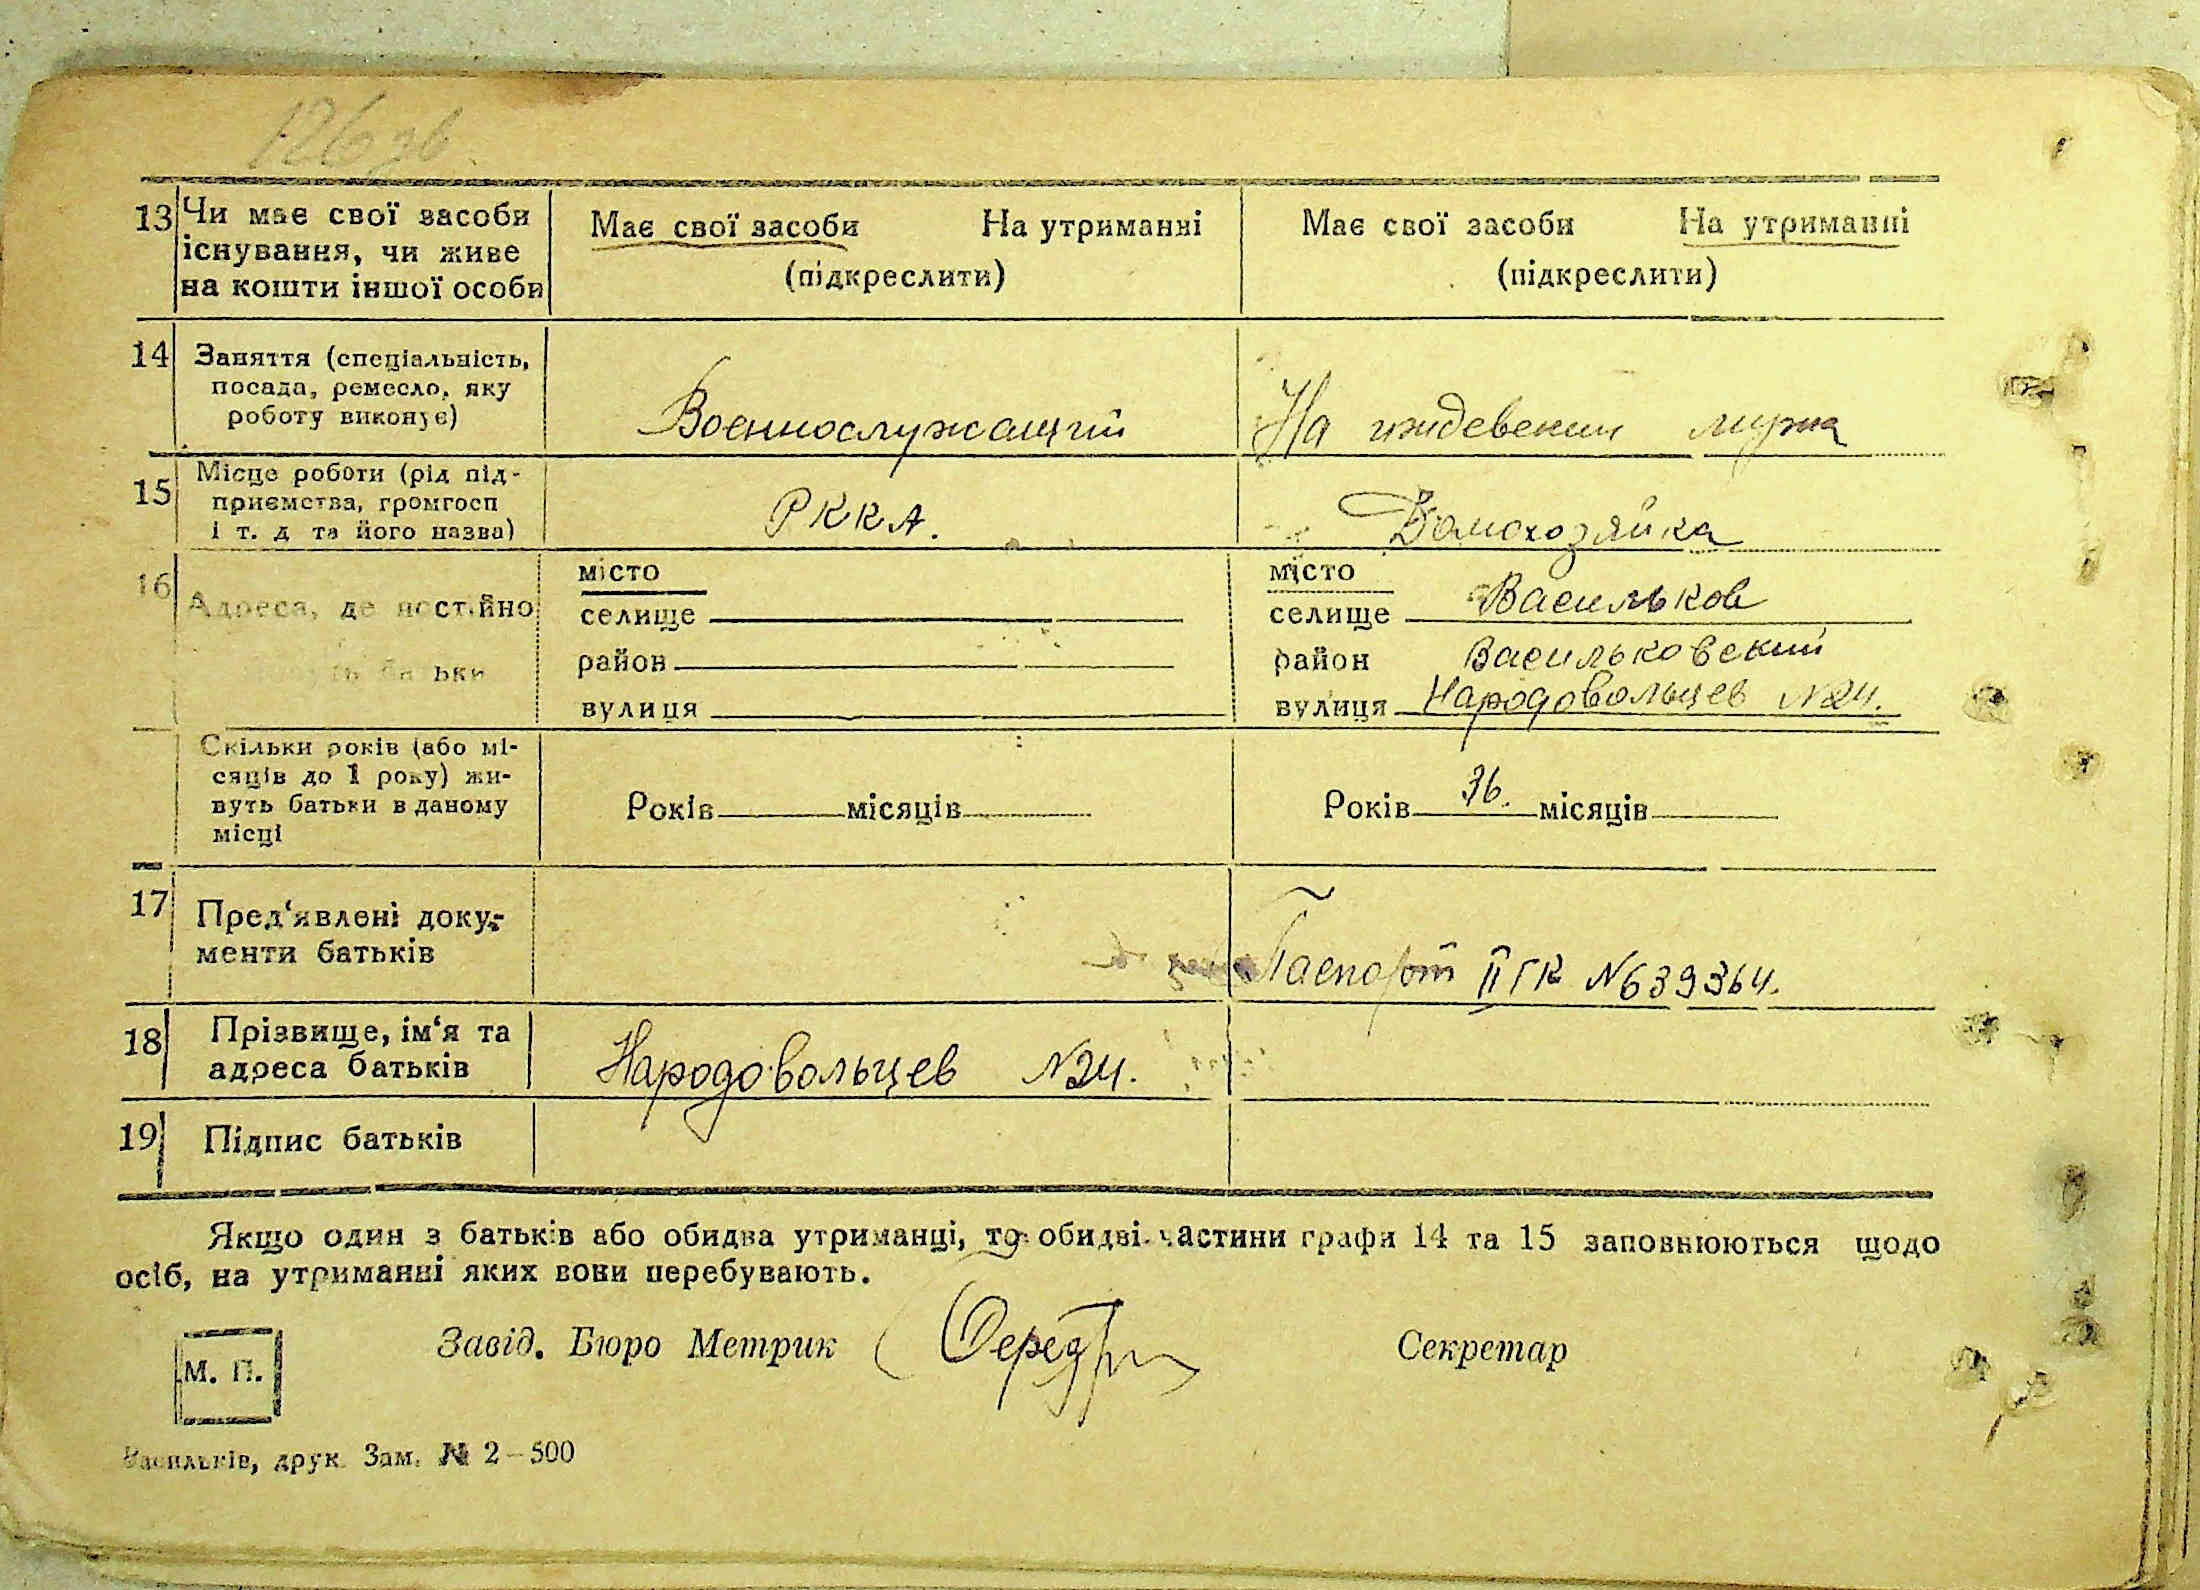 126 зв.
13 Чи має свої засоби існування, чи живе на кошти іншої особи
Має свої засоби На утриманні
(підкреслити)
Має свої засоби На утриманні
(підкреслити)
14 Заняття (спеціальність,
посада, ремесло, яку
роботу виконує)
Военнослужащий
На иждевении мужа
15 Місце роботи (рід під-
приємства, громгосп
і т. д та його назва)
РККА.
Домохозяйка
16 Адреса, де постійно
батьки
місто
селище
район
вулиця
місто
селище Васильков
район Васильковский
вулиця Народовольцев №24.
Скільки років (або мі-
сяців до 1 року) жи-
вуть батьки в даному
місці
Років місяців
Років 36. місяців
17 Пред'явлені доку-
менти батьків
Паспорт II ГК №639364.
18 Прізвище, ім'я та
адреса батьків
Народовольцев №24.
19 Підпис батьків
Якщо один з батьків або обидва утриманці, то обидві частини графи 14 та 15 заповнюються щодо
осіб, на утриманні яких вони перебувають.
М. П.
Завід. Бюро Метрик
Секретар
Васильків, друк. Зам. № 2—500